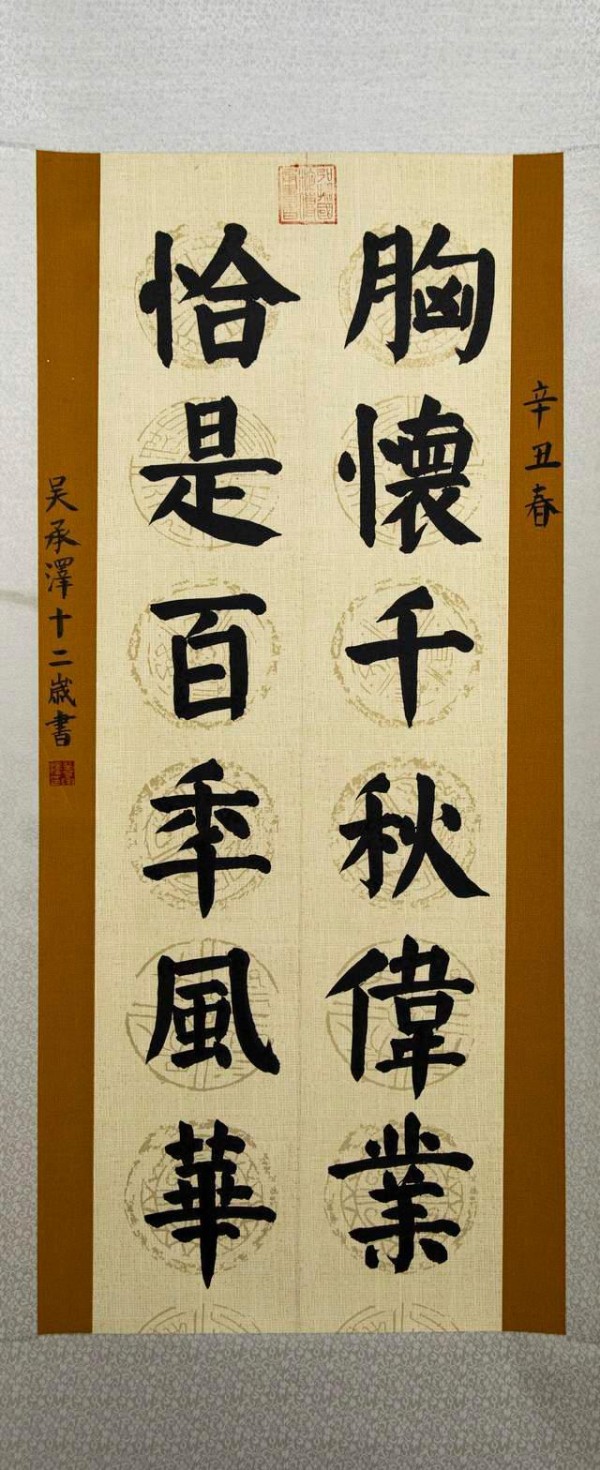 辛丑春
胸懷千秋偉業
恰是百年風華
吳承澤十二歲書